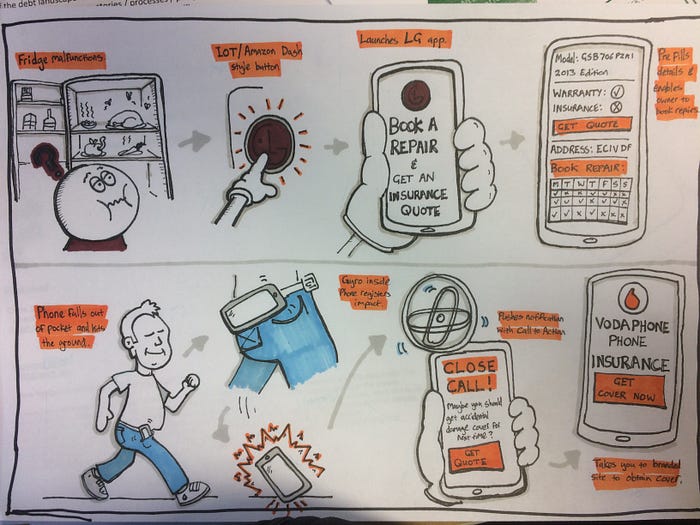 f the debt landscape
stories / processes / p
Fridge malfunctions
IOT/Amazon Dash
style button
Launches LG app.
BOOK A
REPAIR
&
GET AN
INSURANCE
QUOTE
Model: GSB706PZA1
2013 Edition
WARRANTY: ✓
INSURANCE: X
GET QUOTE
ADDRESS: EC1V DF
BOOK REPAIR:
M T W T F S S
Pre Fills
details &
enables
owner to
book repairs.
Phone falls out
of pocket and hits
the ground.
Gyro inside
Phone registers
impact.
Pushes notification
with Call to Action
CLOSE
CALL!
Maybe you should
get accidental
damage cover for
next time?
GET
QUOTE
VODAPHONE
PHONE
INSURANCE
GET
COVER NOW
Takes you to branded
site to obtain cover.